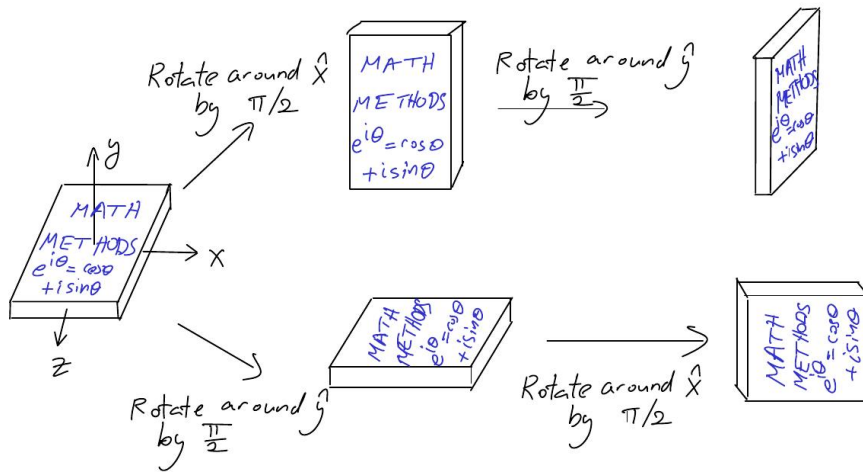 Rotate around x̂
by π/2
MATH
METHODS
e^{iθ} = cosθ
+ i sinθ
Rotate around ŷ
by π/2
MATH
METHODS
e^{iθ} = cosθ
+ i sinθ
y
x
z
MATH
METHODS
e^{iθ} = cosθ
+ i sinθ
Rotate around ŷ
by π/2
MATH
METHODS
e^{iθ} = cosθ
+ i sinθ
Rotate around x̂
by π/2
MATH
METHODS
e^{iθ} = cosθ
+ i sinθ